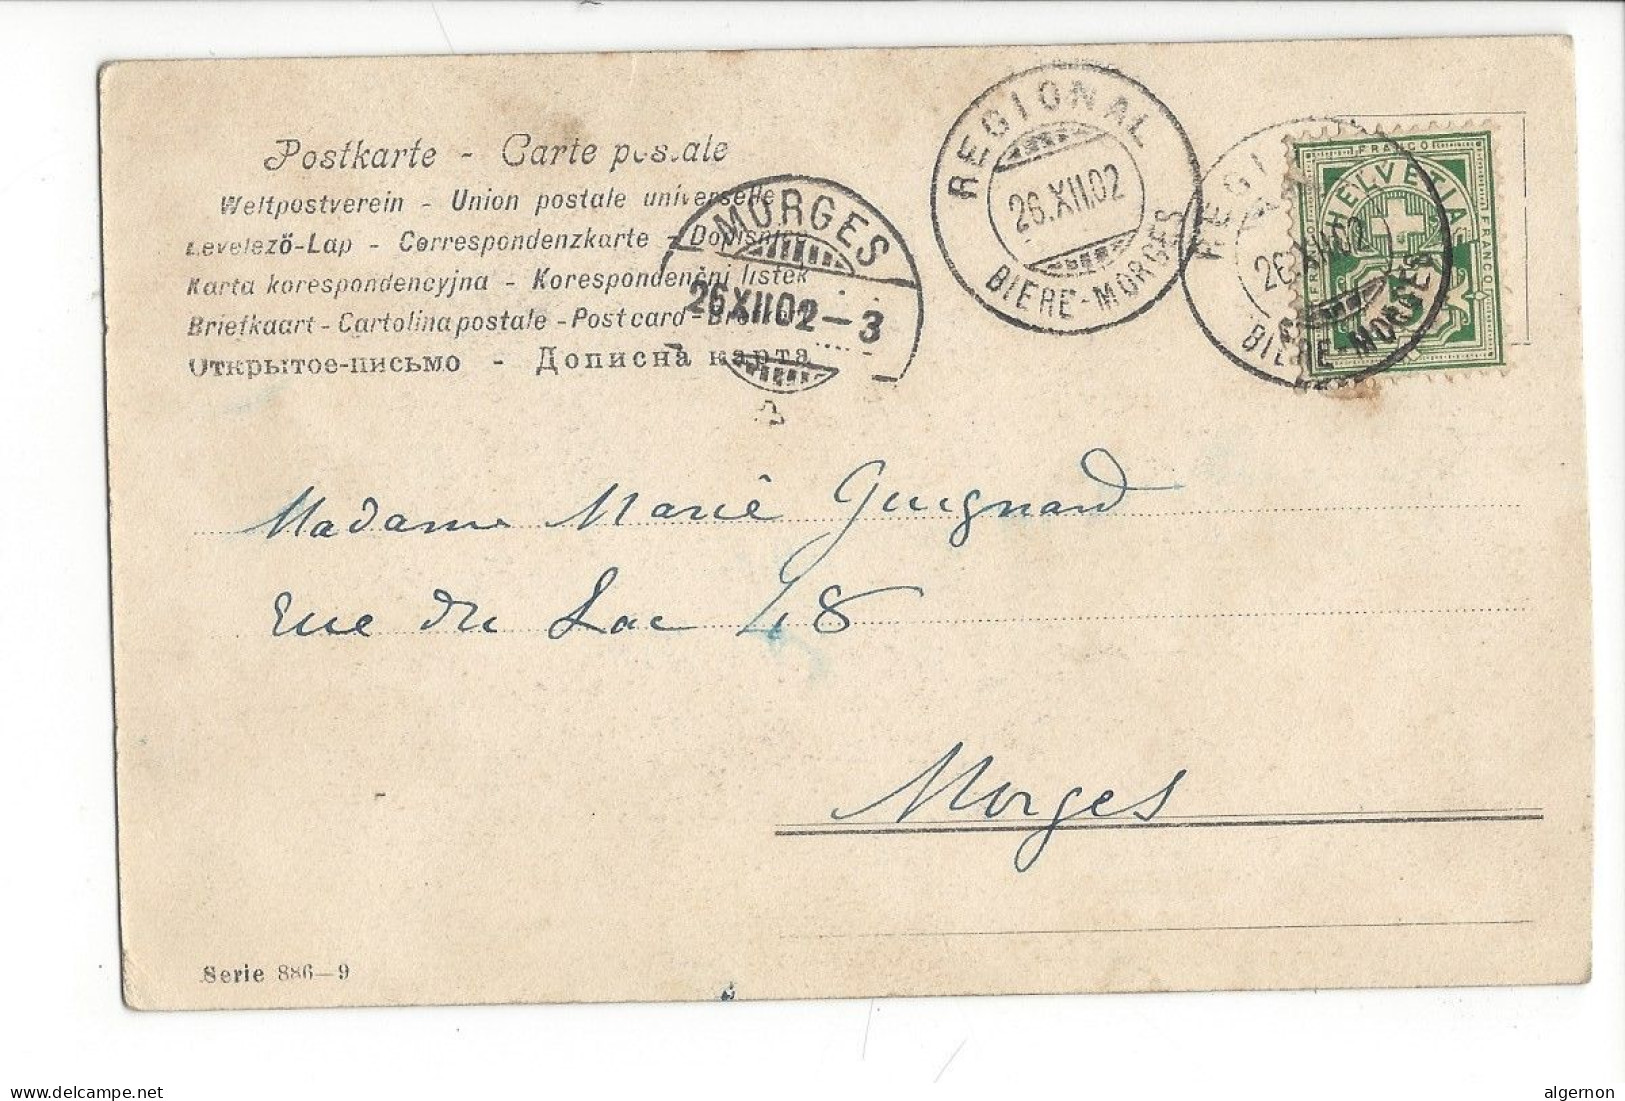 Postkarte - Carte postale
Weltpostverein - Union postale universelle
Levelező-Lap - Correspondenzkarte - Dopisnice
Karta korespondencyjna - Korespondenční lístek
Briefkaart - Cartolina postale - Post card - Brefkort
Открытое-письмо - Дописна карта
MORGES
26 XII 02 - 3
REGIONAL
26.XII.02
BIÈRE-MORGES
REGI
26.XII.02
BIÈRE-MORGES
FRANCO
HELVETIA
FRANCO
5
Madame Marie Guignard
Rue du Lac 48
Morges
Serie 886—9
delcampe.net
algernon